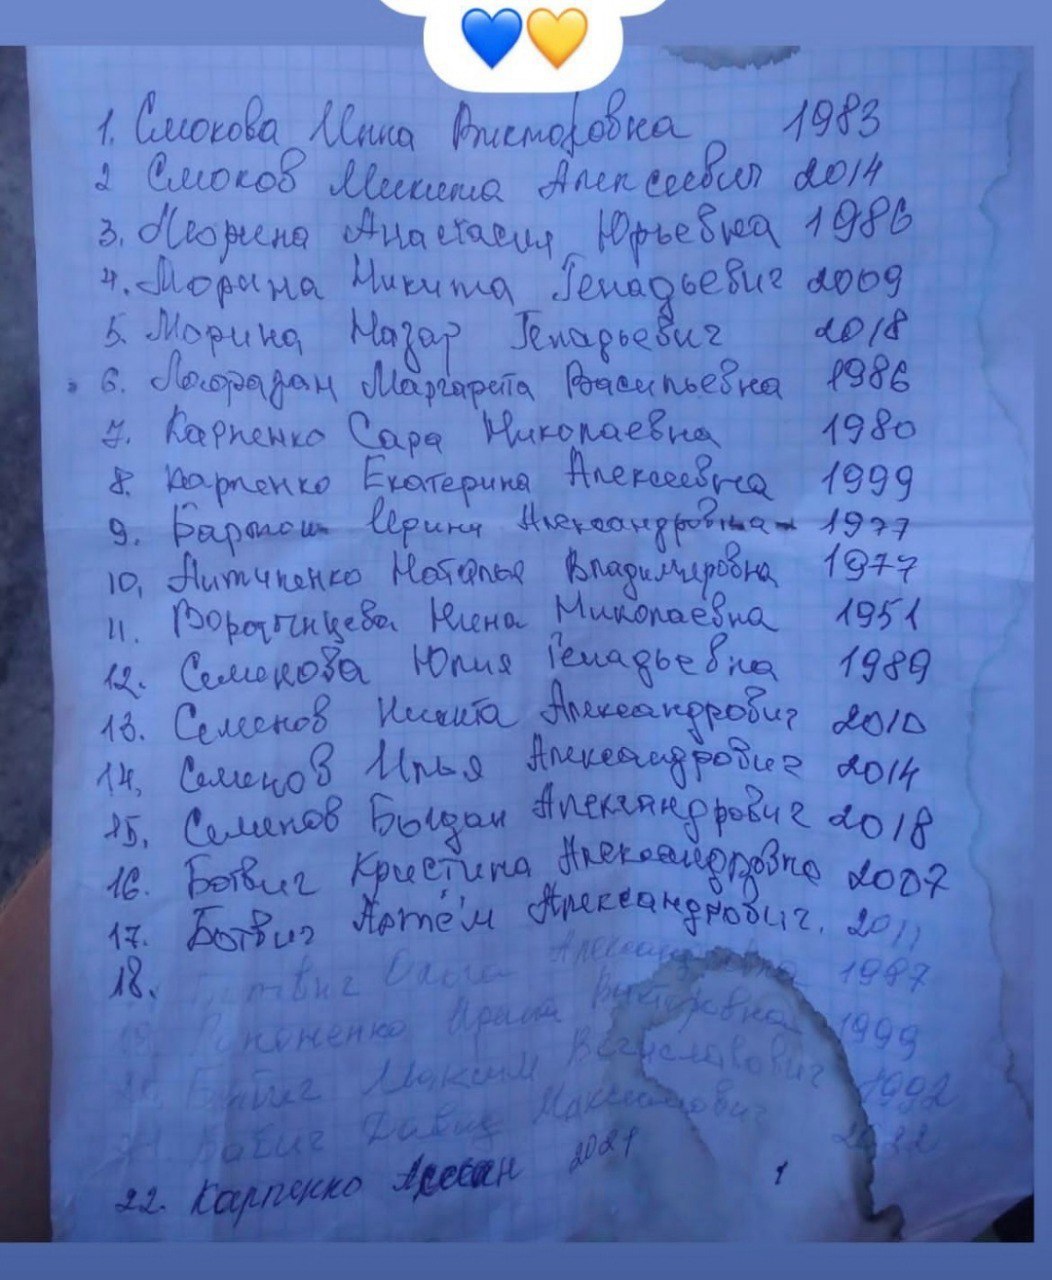 1. Смокова Инна Викторовна 1983
2 Смоков Микита Алексеевич 2014
3. Морина Анастасия Юрьевна 1986
4. Морина Никита Генадьевич 2009
5. Морина Назар Генадьевич 2018
6. Маргарита Васильевна 1986
7. Карпенко Сара Николаевна 1980
8. Карпенко Екатерина Алексеевна 1999
9. Бартош Ирина Александровна 1977
10. Литвиненко Наталья Владимировна 1977
11. Нина Николаевна 1951
12. Семенова Юлия Генадьевна 1989
13. Семенов Никита Александрович 2010
14. Семенов Илья Александрович 2014
15. Семенов Богдан Александрович 2018
16. Ботвиг Кристина Александровна 2007
17. Ботвиг Артём Александрович. 2011
18. Ольга Александровна 1987
Викторовна 1999
Максим 1992
Давид Максимович
22. Карпенко 2021
1